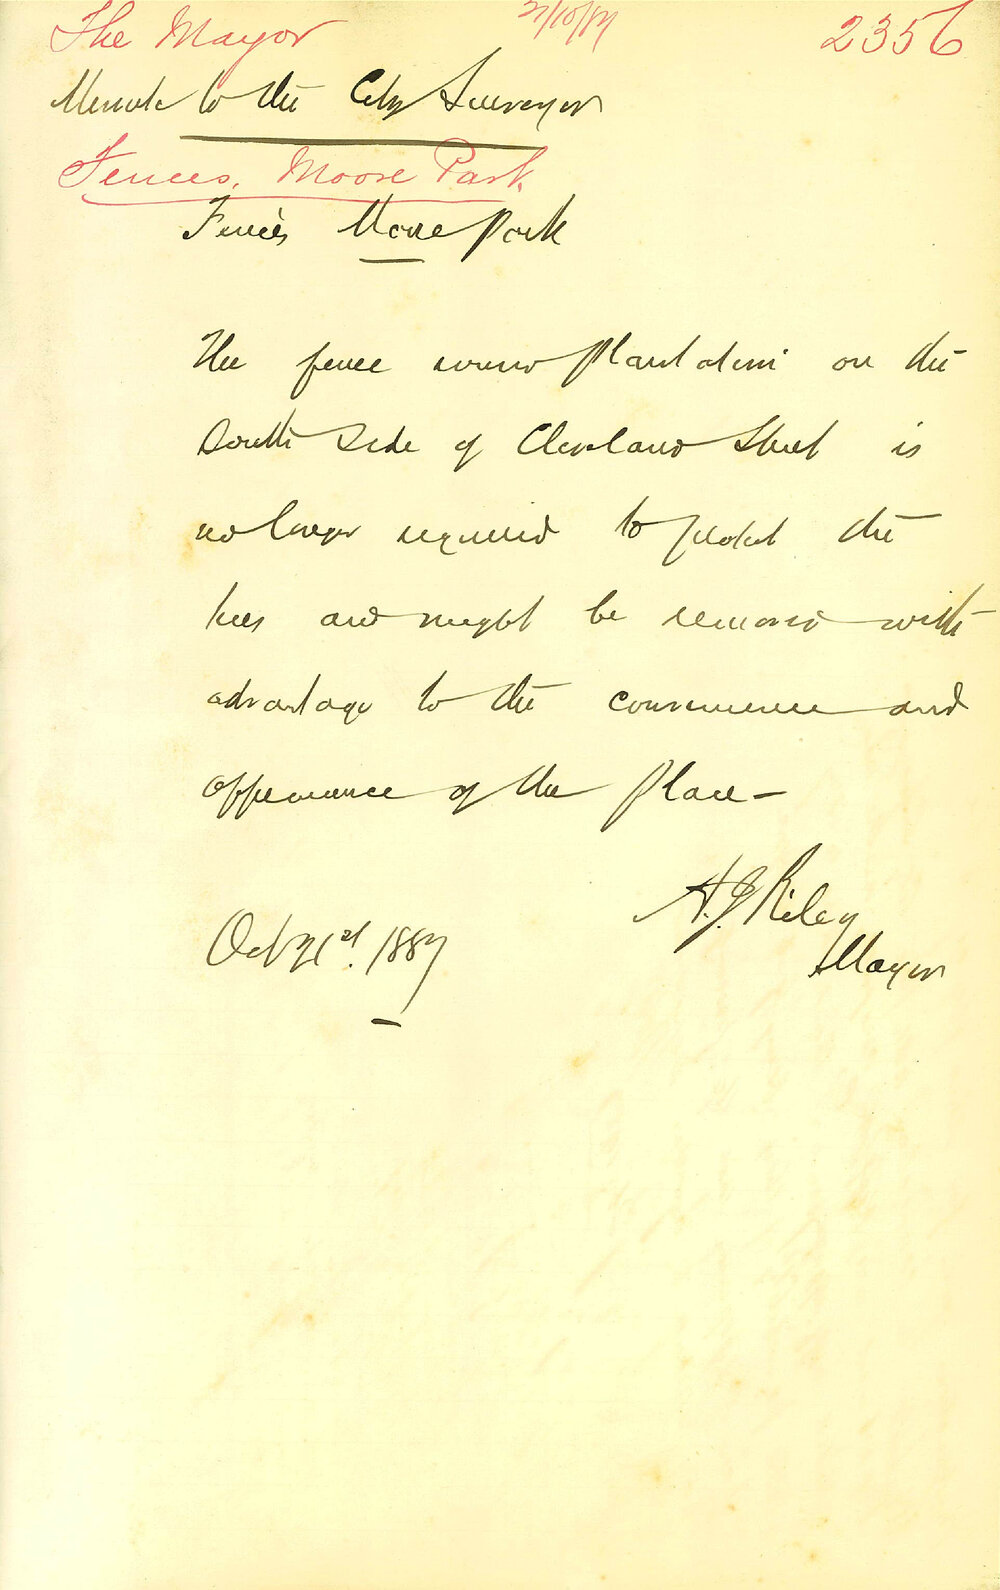 The Mayor 21/10/87 2356
Minute to the City Surveyor
Fences, Moore Park
Fences Moore Park
The fence round plantation on the
South Side of Cleveland Street is
no longer required to protect the
trees and might be removed with
advantage to the convenience and
appearance of the Place—
A.J. Riley
Oct 21st. 1887
Mayor